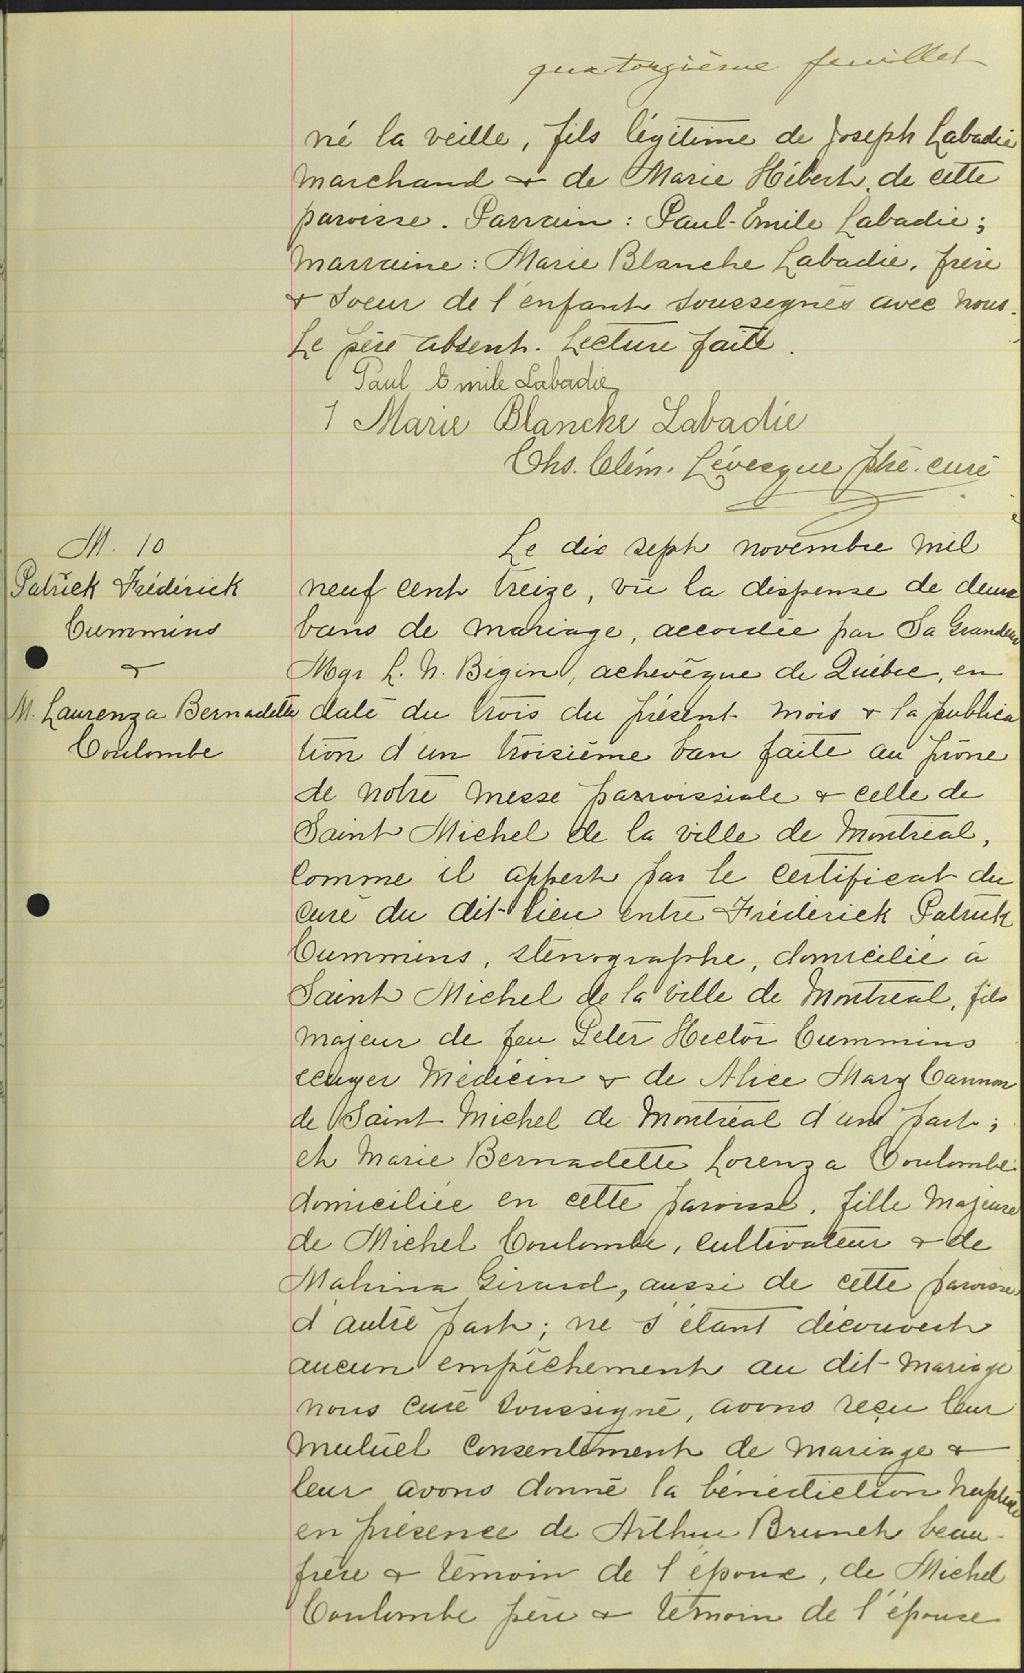 quatorzième feuillet
né la veille, fils légitime de Joseph Labadie
marchand & de Marie Hébert, de cette
paroisse. Parrain : Paul-Emile Labadie ;
marraine : Marie Blanche Labadie, frère
& soeur de l'enfant soussegnés avec nous.
Le père absent. Lecture faite.
Paul Emile Labadie
Marie Blanche Labadie
Chs. Clém. Lévesque ptre. curé
M. 10
Patrick Frédérick
Cummins
&
M. Laurenza Bernadette
Coulombe
Le dix sept novembre mil
neuf cent treize, vu la dispense de deux
bans de mariage, accordée par Sa Grandeur
Mgr L. N. Bégin, achevêque de Québec, en
date du trois du présent mois & la publica
tion d'un troisième ban faite au prône
de notre messe parroissiale & celle de
Saint Michel de la ville de Montréal,
comme il appert par le certificat du
curé du dit-lieu entre Fréderick Patrick
Cummins, sténographe, domicilié à
Saint Michel de la ville de Montréal, fils
majeur de feu Peter Hector Cummins
écuyer Médécin & de Alice Mary Cannon
de Saint Michel de Montréal d'une part ;
et Marie Bernadette Lorenza Coulombe
domiciliée en cette paroisse, fille majeure
de Michel Coulombe, cultivateur & de
Malvina Girard, aussi de cette paroisse
d'autre part ; ne s'étant découvert
aucun empêchement au dit mariage
nous curé soussigné, avons reçu leur
mutuel consentement de mariage &
leur avons donné la bénédiction nuptiale
en présence de Arthur Brunet beau-
frère & témoin de l'époux, de Michel
Coulombe père & témoin de l'épouse